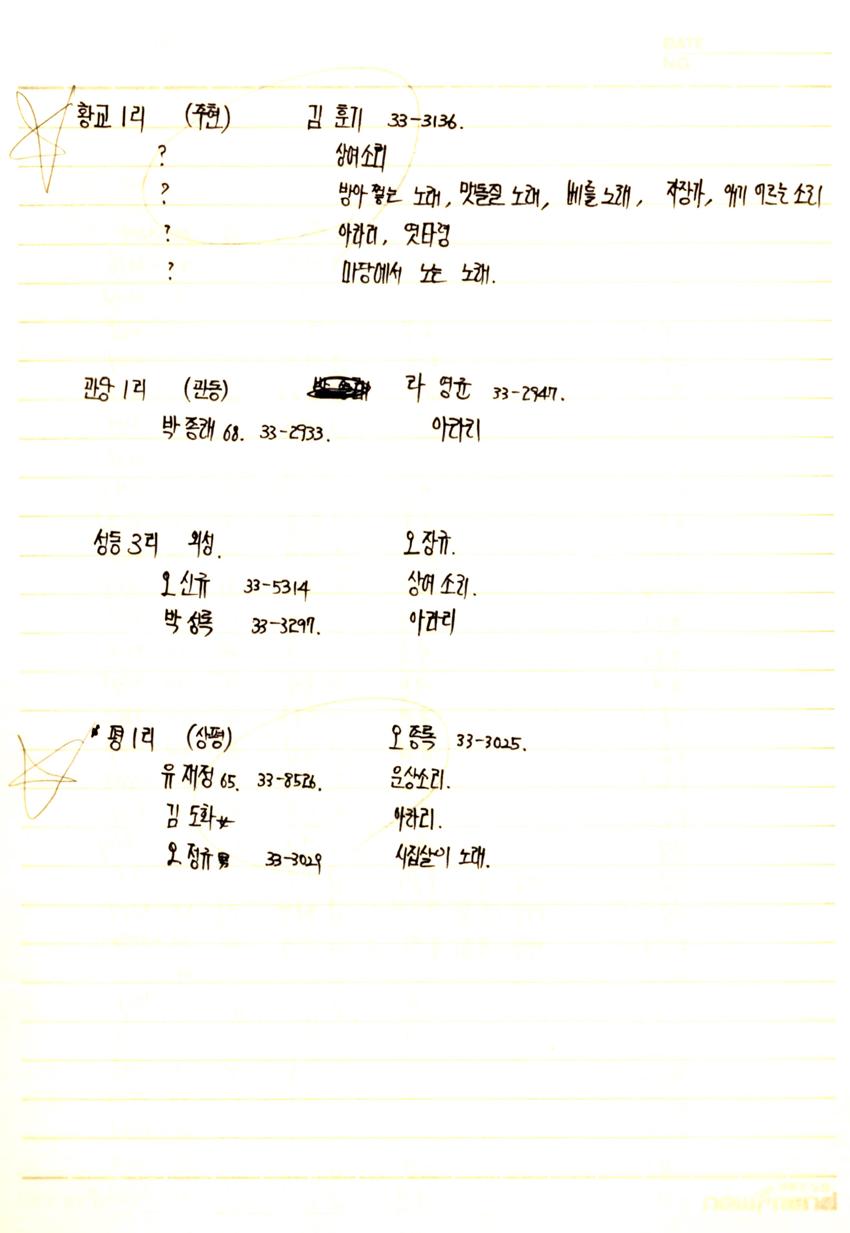 DATE
NO.
황교 1리 (주현) 김 훈기 33-3136.
? 상여소리
? 방아 찧는 노래, 맷돌질 노래, 베틀노래, 자장가, 애기 어르는 소리
? 아라리, 엿타령
? 마당에서 노는 노래.
관앙 1리 (관동) 라 영균 33-2947.
박종래 68. 33-2933. 아라리
성등 3리 외성. 오장규.
오신규 33-5314 상여소리.
박성록 33-3297. 아라리
평 1리 (상평) 오종록 33-3025.
유재정 65. 33-8526. 운상소리.
김도화 女 아라리.
오정규 男 33-3029 시집살이 노래.